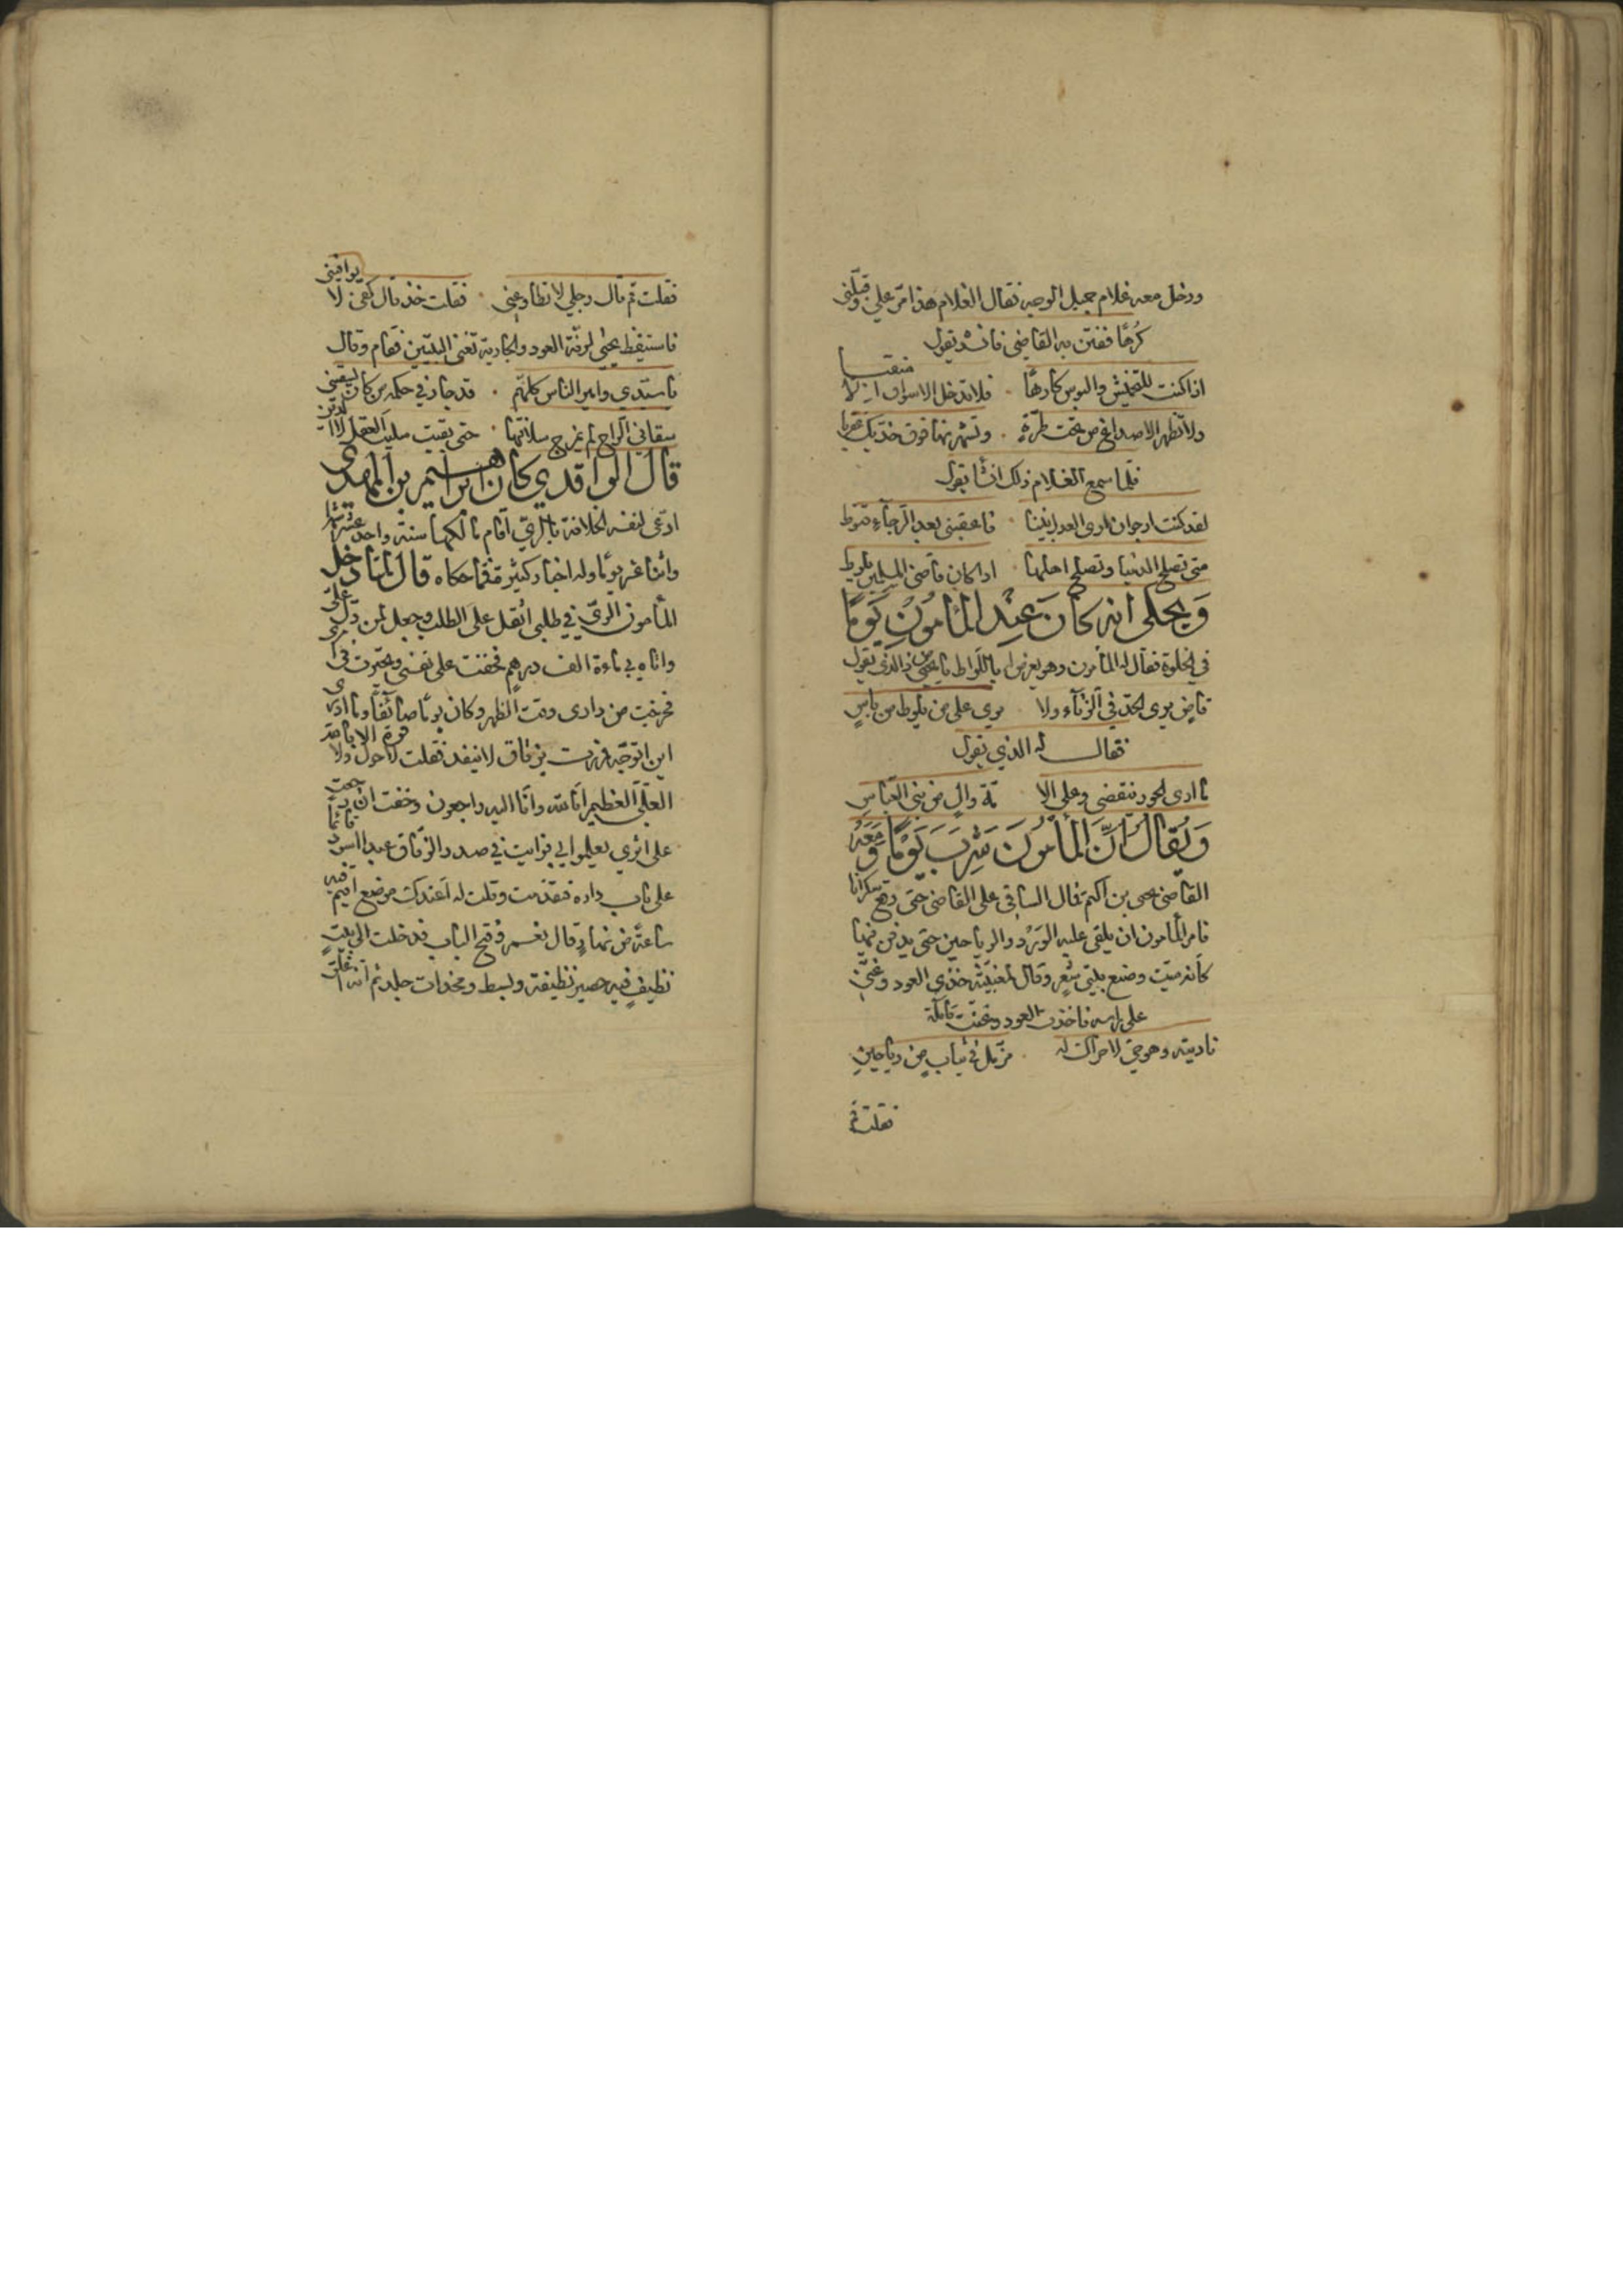 ودخل معه غلام جميل الوجه فقال الغلام هذا مرّ علي وقبّلني
كرهًا ففتن به القاضي فانشد يقول
اذا كنت للتخميش والبوس كارهًا ٠ فلا تدخل الاسواق الا منقبا
ولا تظهر الاصداغ من تحت طرّةٍ ٠ وتشهر منها فوق خدّيك عقربا
فلما سمع الغلام ذلك انشأ يقول
لقد كنت ارجو ان ارى العدل بيننا ٠ فاعقبني بعد الرّجآء قنوط
متى تصلح الدنيا وتصلح اهلها ٠ اذا كان قاضى المسلمين يلوط
وَيحكى انه كانَ عِندَ المأمُونِ يَومًا
في الخلوة فقال له المأمون وهو يعرض له باللّواط يا يحيى من ذا الذي يقول
قاضٍ يرى الحدّ في الزنآء ولا ٠ يرى على من يلوط من باسٍ
فقال له الذي يقول
ما ارى الجور ينقضي وعلى الا ٠ مّة والٍ من بني العبّاسِ
وَيُقالُ انَّ المأمُونَ شَرِبَ يَومًا وَمَعَهُ
القاضى يحيى بن اكثم فمال الساقى على القاضى حتى وقع سكرانا
فامر المأمون ان يلقى عليه الوَرْد والرياحين حتى يدفن فيها
كانه ميّت وصنع بيتي شعرٍ وقال لمغنيّته خذي العود وغنّي
على راسه فاخذت العود وغنت قائلة
ناديته وهو حيّ لا حراك له ٠ مزمّل في ثياب من رياحينِ
فقلت قم
فقلت قم قال رجلي لا تطاوعني ٠ فقلت خذ قال كفى لا يواتيني
فاستيقظ يحيى لرنّة العود والجارية تغني البيتين فقام وقال
يا سيّدي وامير الناس كلهم ٠ قد جار في حكمه من كان يسقيني
سقاني الراح لم يمزج سلافتها ٠ حتى بقيت سليب العقل والدين
قال الواقدي كان ابراهيم بن المهدى
ادّعى لنفسه الخلافة بالريّ اقام مالكها سنة واحد عشر شهرا
واثنا عشر يومًا وله اخبار كثيرة فمما حكاه قال لما دخل
المأمون الريّ في طلبي اثقل على الطلب وجعل لمن دل عليّ
واتاه بي ماءة الف درهم فخفت على نفسي وتحيّرت في امرى
فخرجت من دارى وقت الظهر وكان يومًا صائفًا وما ادرى
اين اتوجّه فمررت بزقاق لا ينفد فقلت لا حول ولا قوة الا بالله
العليّ العظيم انا لله وانّا اليه راجعون وخفت ان رجعت
على اثري يعلموا بي فرايت في صدر الزقاق عبدا اسود قائمًا
على باب داره فتقدمت وقلت له اعندك موضع اقيم فيه
ساعةً من نهارٍ قال نعم وفتح الباب فدخلت الى بيتٍ
نظيفٍ فيه حصير نظيفة وبسط ومخدات جلد ثم انه اغلق